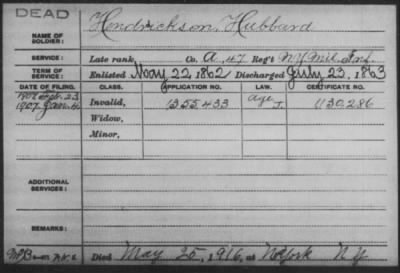 DEAD
NAME OF SOLDIER: Hendrickson, Hubbard
SERVICE: Late rank, Co. A, 47 Reg't NY Mil. Inf.
TERM OF SERVICE: Enlisted May 22, 1862 Discharged July 23, 1863
DATE OF FILING. CLASS. APPLICATION NO. LAW. CERTIFICATE NO.
23
1907 Jan. 4 Invalid, 1355433 Age 1130,286
Widow,
Minor,
ADDITIONAL SERVICES:
REMARKS:
Died May 25, 1916, at N.Y.